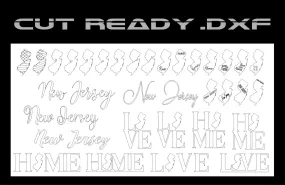 CUT READY .DXF
New Jersey
New Jersey
New Jersey
New Jersey
LO
VE
LO
VE
HO
ME
HO
ME
HOME
HOME
LOVE
LOVE